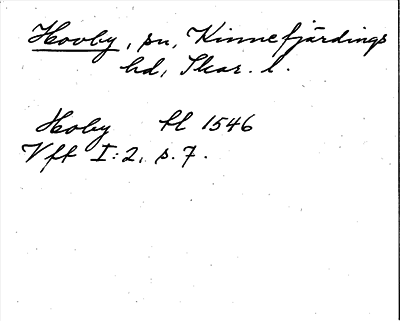 Hovby, sn, Kinnefjärdings
hd, Skar. l.
Hoby tl 1546
Vft I:2, s. 7.